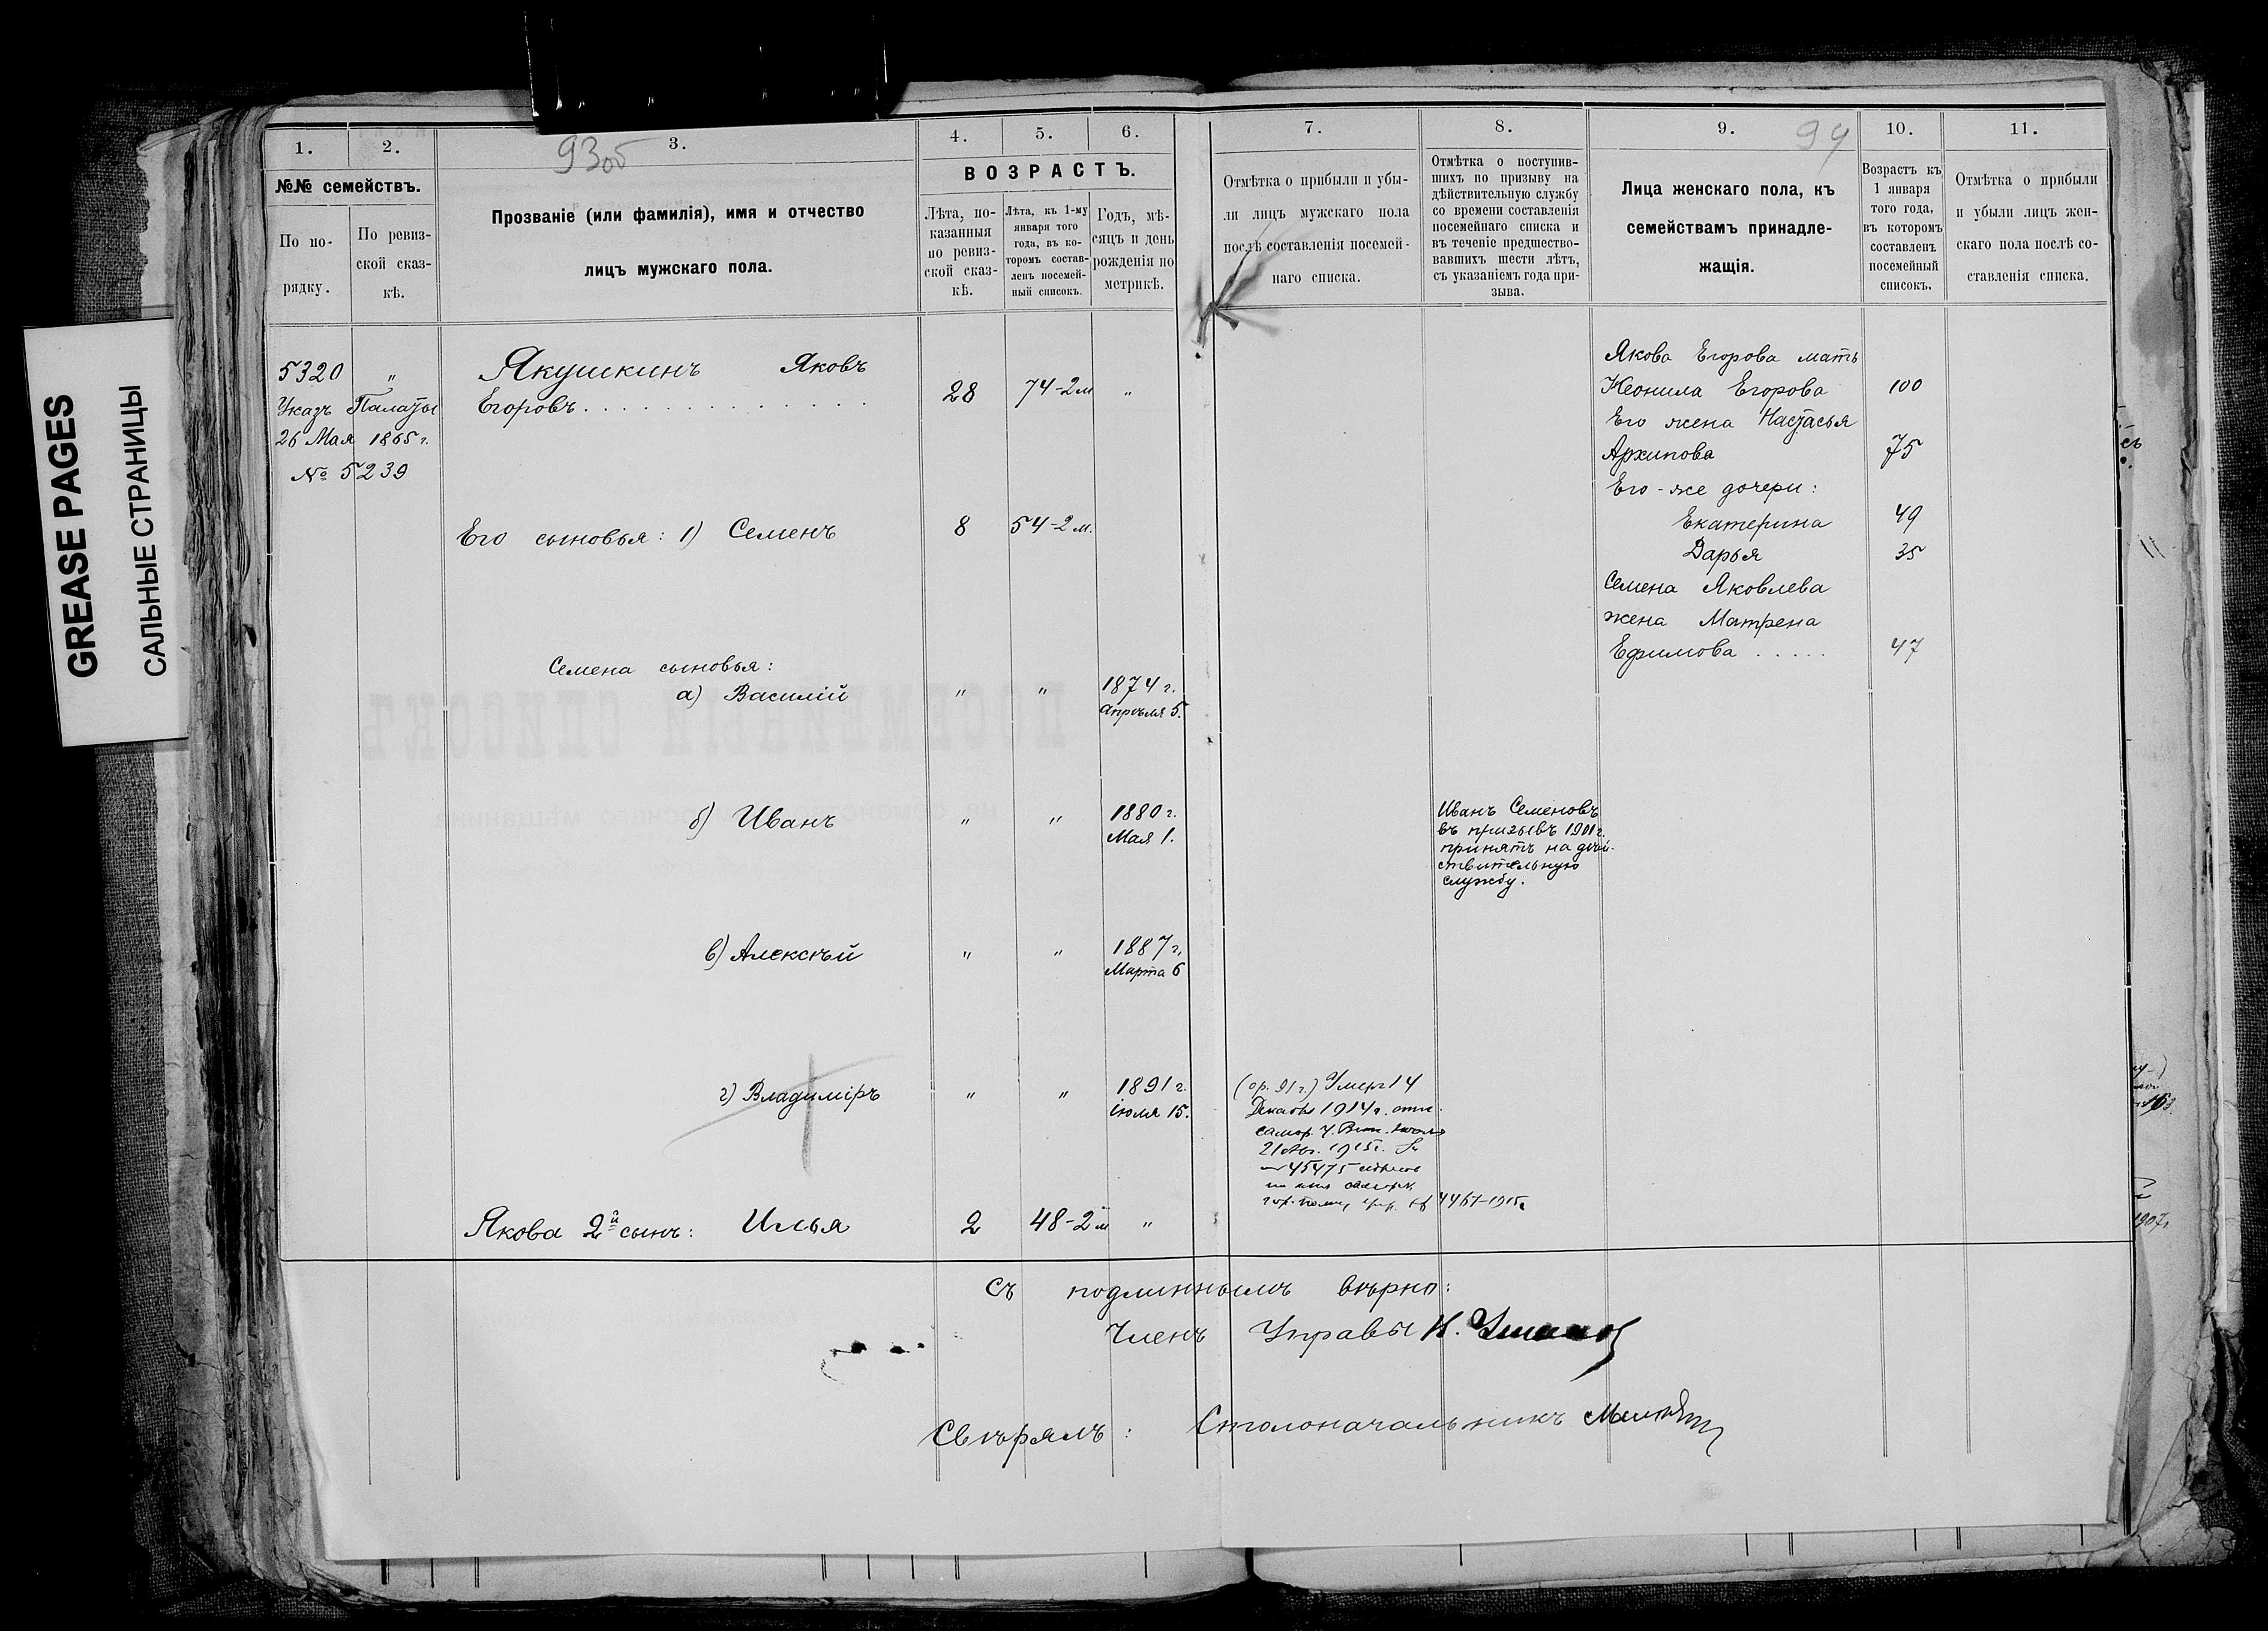 GREASE PAGES
САЛЬНЫЕ СТРАНИЦЫ
93об
94
1.
2.
3.
4.
5.
6.
7.
8.
9.
10.
11.
№№ семействъ.
По по-
рядку.
По ревиз-
ской сказ-
кѣ.
Прозваніе (или фамилія), имя и отчество
лицъ мужскаго пола.
ВОЗРАСТЪ.
Лѣта, по-
казанныя
по ревиз-
ской сказ-
кѣ.
Лѣта, къ 1-му
января того
года, въ ко-
торомъ состав-
ленъ посемей-
ный списокъ.
Годъ, мѣ-
сяцъ и день
рожденія по
метрикѣ.
Отмѣтка о прибыли и убы-
ли лицъ мужскаго пола
послѣ составленія посемей-
наго списка.
Отмѣтка о поступив-
шихъ по призыву на
дѣйствительную службу
со времени составленія
посемейнаго списка и
въ теченіе предшество-
вавшихъ шести лѣтъ,
съ указаніемъ года при-
зыва.
Лица женскаго пола, къ
семействамъ принадле-
жащія.
Возрастъ къ
1 января
того года,
въ которомъ
составленъ
посемейный
списокъ.
Отмѣтка о прибыли
и убыли лицъ жен-
скаго пола послѣ со-
ставленія списка.
5320 „ Якушкинъ Яковъ
Указъ Палаты Егоровъ . . . . . . . . . . . . . . 28 74-2м „
26 Мая 1865 г.
№ 5239
Его сыновья: 1) Семенъ 8 54-2м.
Семена сыновья:
а) Василій „ „ 1874 г.
Апрѣля 5.
б) Иванъ „ „ 1880 г.
Мая 1.
Иванъ Семеновъ
въ призывъ 1901 г.
принятъ на дѣй-
ствительную
службу.
в) Алексѣй „ „ 1887 г.
Марта 6
г) Владиміръ „ „ 1891 г.
Іюля 15.
(ср. 91 г.) Умеръ 14
Декабря 1914 г.
21 1915 г.
45475
4467-1915 г.
Якова 2й сынъ: Илья 2 48-2м „
Якова Егорова мать
Неонила Егорова 100
Его жена Настасья
Архипова 75
Его-же дочери:
Екатерина 49
Дарья 35
Семена Яковлева
жена Матрена
Ефимова . . . . . 47
Съ подлиннымъ вѣрно:
Членъ Управы
Свѣрялъ: Столоначальникъ